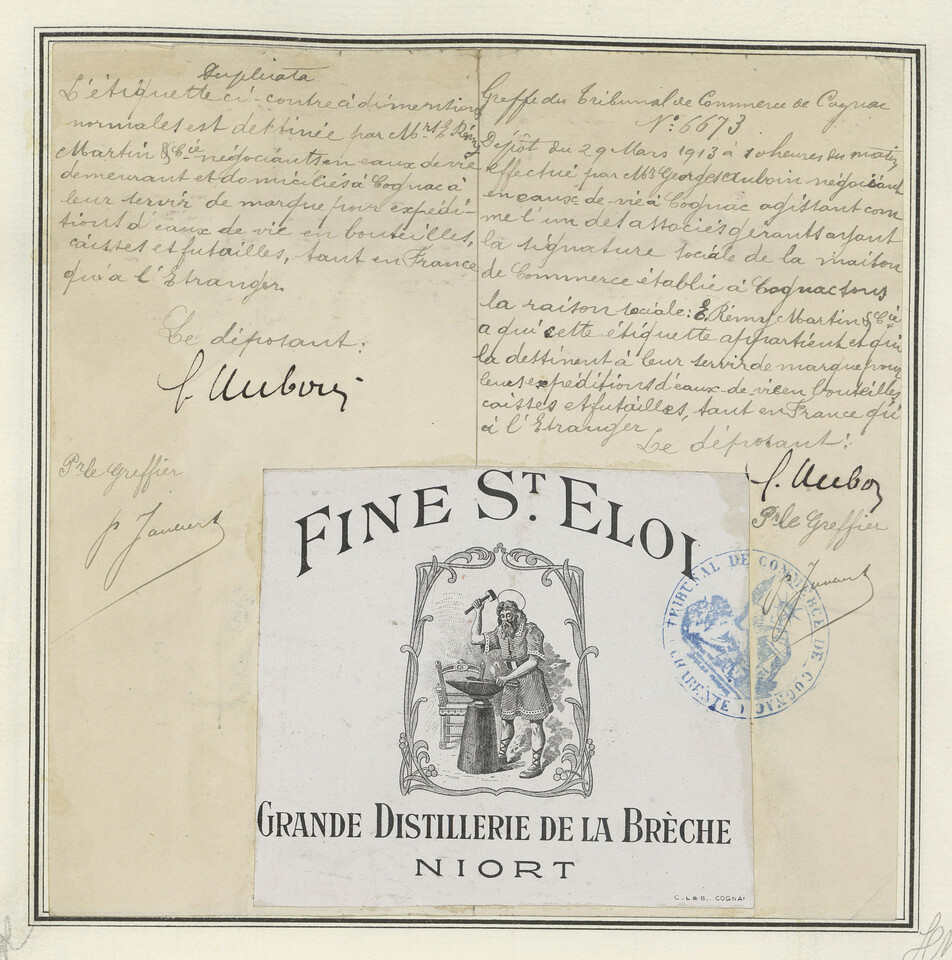 Duplicata
L'étiquette ci-contre à dimensions
normales est destinée par Mrs E. Rémy
Martin & Cie négociants en eaux de vie
demeurant et domiciliés à Cognac à
leur servir de marque pour expédi-
tions d'eaux de vie en bouteilles,
caisses et futailles, tant en France
qu'à l'Etranger.
Le déposant:
G. Auboin
Pr le Greffier
Greffe du Tribunal de Commerce de Cognac
No. 6673
Dépôt du 29 Mars 1913 à 10 heures du matin
effectué par Mr Georges Auboin négociant
en eaux-de-vie à Cognac agissant com
me l'un des associés gérants ayant
la signature sociale de la maison
de Commerce établie à Cognac sous
la raison sociale: E. Rémy Martin & Cie
a qui cette étiquette appartient et qui
la destinent à leur servir de marque pour
leurs expéditions d'eaux-de-vie en bouteilles
caisses et futailles, tant en France qu'
à l'Etranger
Le déposant:
G. Auboin
Pr le Greffier
FINE ST. ELOI
TRIBUNAL DE COMMERCE DE COGNAC
CHARENTE
GRANDE DISTILLERIE DE LA BRÈCHE
NIORT
C. L & B.. COGNAC